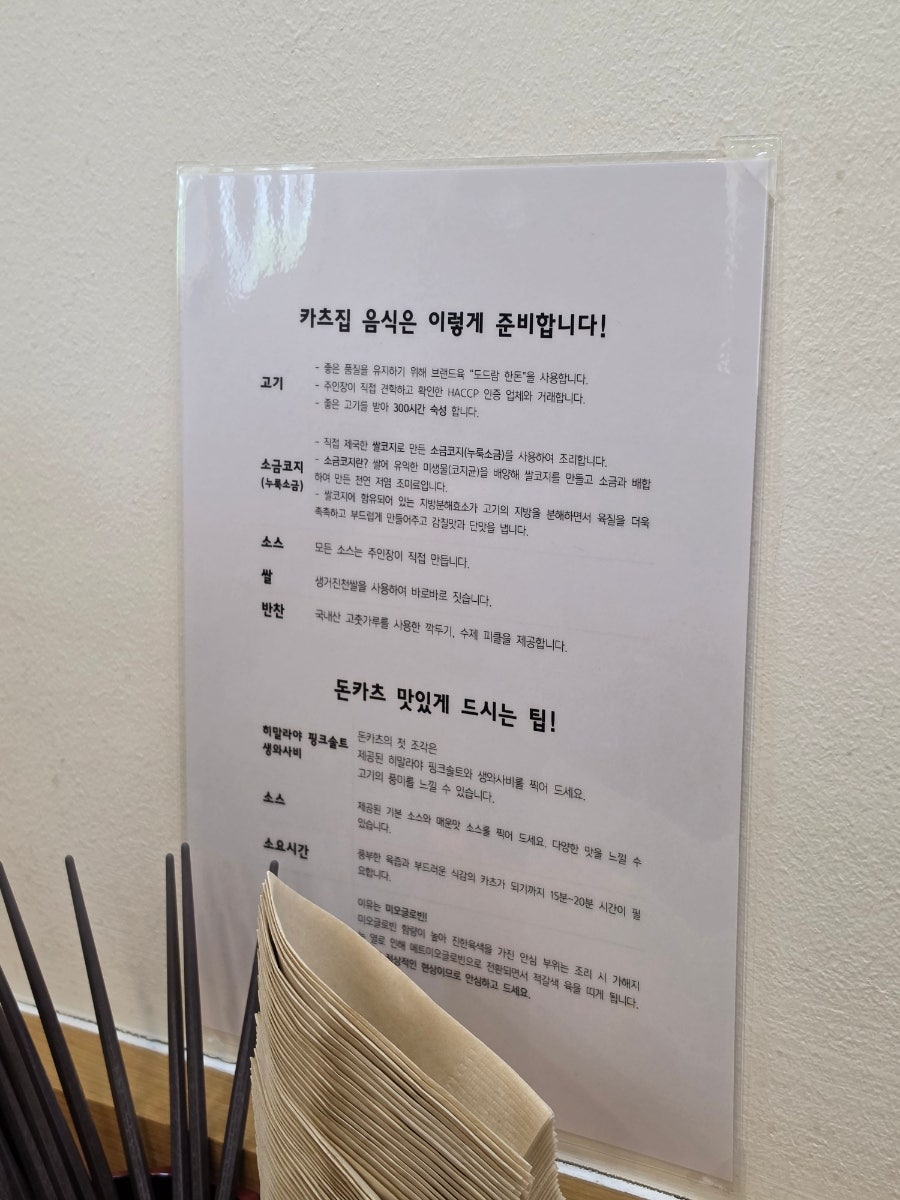 카츠집 음식은 이렇게 준비합니다!
고기
- 좋은 품질을 유지하기 위해 브랜드육 "도드람 한돈"을 사용합니다.
- 주인장이 직접 견학하고 확인한 HACCP 인증 업체와 거래합니다.
- 좋은 고기를 받아 300시간 숙성 합니다.
소금코지
(누룩소금)
- 직접 제국한 쌀코지로 만든 소금코지(누룩소금)을 사용하여 조리합니다.
- 소금코지란? 쌀에 유익한 미생물(코지균)을 배양해 쌀코지를 만들고 소금과 배합
하여 만든 천연 저염 조미료입니다.
- 쌀코지에 함유되어 있는 지방분해효소가 고기의 지방을 분해하면서 육질을 더욱
촉촉하고 부드럽게 만들어주고 감칠맛과 단맛을 냅니다.
소스
모든 소스는 주인장이 직접 만듭니다.
쌀
생거진천쌀을 사용하여 바로바로 짓습니다.
반찬
국내산 고춧가루를 사용한 깍두기, 수제 피클을 제공합니다.
돈카츠 맛있게 드시는 팁!
히말라야 핑크솔트
생와사비
돈카츠의 첫 조각은
제공된 히말라야 핑크솔트와 생와사비를 찍어 드세요.
고기의 풍미를 느낄 수 있습니다.
소스
제공된 기본 소스와 매운맛 소스를 찍어 드세요. 다양한 맛을 느낄 수
있습니다.
소요시간
풍부한 육즙과 부드러운 식감의 카츠가 되기까지 15분~20분 시간이 필
요합니다.
이유는 미오글로빈!
미오글로빈 함량이 높아 진한육색을 가진 안심 부위는 조리 시 가해지
는 열로 인해 메트미오글로빈으로 전환되면서 적갈색 육을 띠게 됩니다.
정상적인 현상이므로 안심하고 드세요.